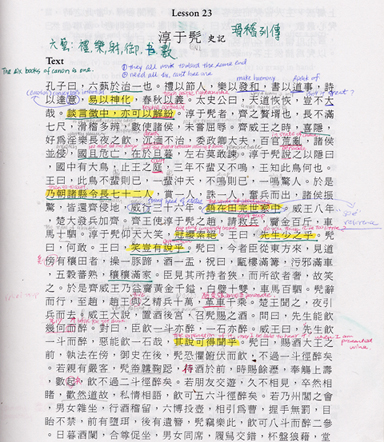 Lesson 23
滑稽列傳
淳于髡 史記
六藝: 禮,樂,射,御,書,數
Text
The six books of canon is one.
① they all work toward the same end
② need all six, can't lose one
孔子曰，六藝於治一也。禮以節人，樂以發和，書以道事，詩
以達意，易以神化，春秋以義。太史公曰，天道恢恢，豈不大
哉。談言微中，亦可以解紛。淳于髡者，齊之贅壻也，長不滿
七尺，滑稽多辯，數使諸侯，未嘗屈辱。齊威王之時，喜隱，
好為淫樂長夜之飲，沉湎不治，委政卿大夫，百官荒亂，諸侯
並侵，國且危亡，在於旦暮，左右莫敢諫。淳于髡說之以隱曰，
國中有大鳥，止王之庭，三年不蜚又不鳴，王知此鳥何也。
王曰，此鳥不蜚則已，一蜚沖天，不鳴則已，一鳴驚人。於是
乃朝諸縣令長七十二人，賞一人，誅一人，奮兵而出，諸侯振
驚，皆還齊侵地，威行三十六年。語在田完世家中。威王八年，
楚大發兵加齊。齊王使淳于髡之趙，請救兵，齎金百斤，車
馬十駟。淳于髡仰天大笑，冠纓索絕。王曰，先生少之乎。髡
曰，何敢。王曰，笑豈有說乎。髡曰，今者臣從東方來，見道
傍有穰田者，操一豚蹄，酒一盂，祝曰，甌窶滿篝，污邪滿車，
五穀蕃熟，穰穰滿家。臣見其所持者狹，而所欲者奢，故笑
之。於是齊威王乃益齎黃金千鎰，白璧十雙，車馬百駟。髡辭
而行，至趙，趙王與之精兵十萬，革車千乘。楚聞之，夜引
兵而去。威王大說，置酒後宮，召髡賜之酒。問曰，先生能飲
幾何而醉。對曰，臣飲一斗亦醉，一石亦醉。威王曰，先生飲
一斗而醉，惡能飲一石哉，其說可得聞乎。髡曰，賜酒大王之
前，執法在傍，御史在後，髡恐懼俯伏而飲，不過一斗徑醉矣。
若親有嚴客，髡帣韝鞠跽，侍酒於前，時賜餘瀝，奉觴上壽，
數起，飲不過二斗徑醉矣。若朋友交遊，久不相見，卒然相
睹，歡然道故，私情相語，飲可五六斗徑醉矣。若乃州閭之會，
男女雜坐，行酒稽留，六博投壺，相引為曹，握手無罰，目
眙不禁，前有墮珥，後有遺簪，髡竊樂此，飲可八斗而醉二參。
日暮酒闌，合尊促坐，男女同席，履舄交錯，杯盤狼藉，堂